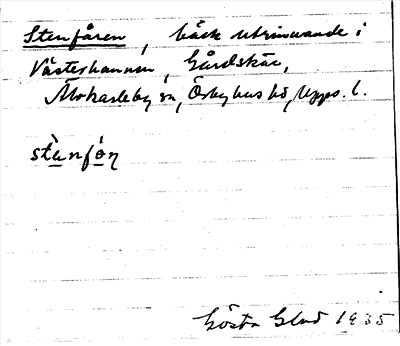 Stenfåren, bäck utrinnande i
Västerhamnen, Gårdskär,
Älvkarleby sn, Örbyhus hd, Upps. l.
stὰnfȯn
Gösta Glad 1935